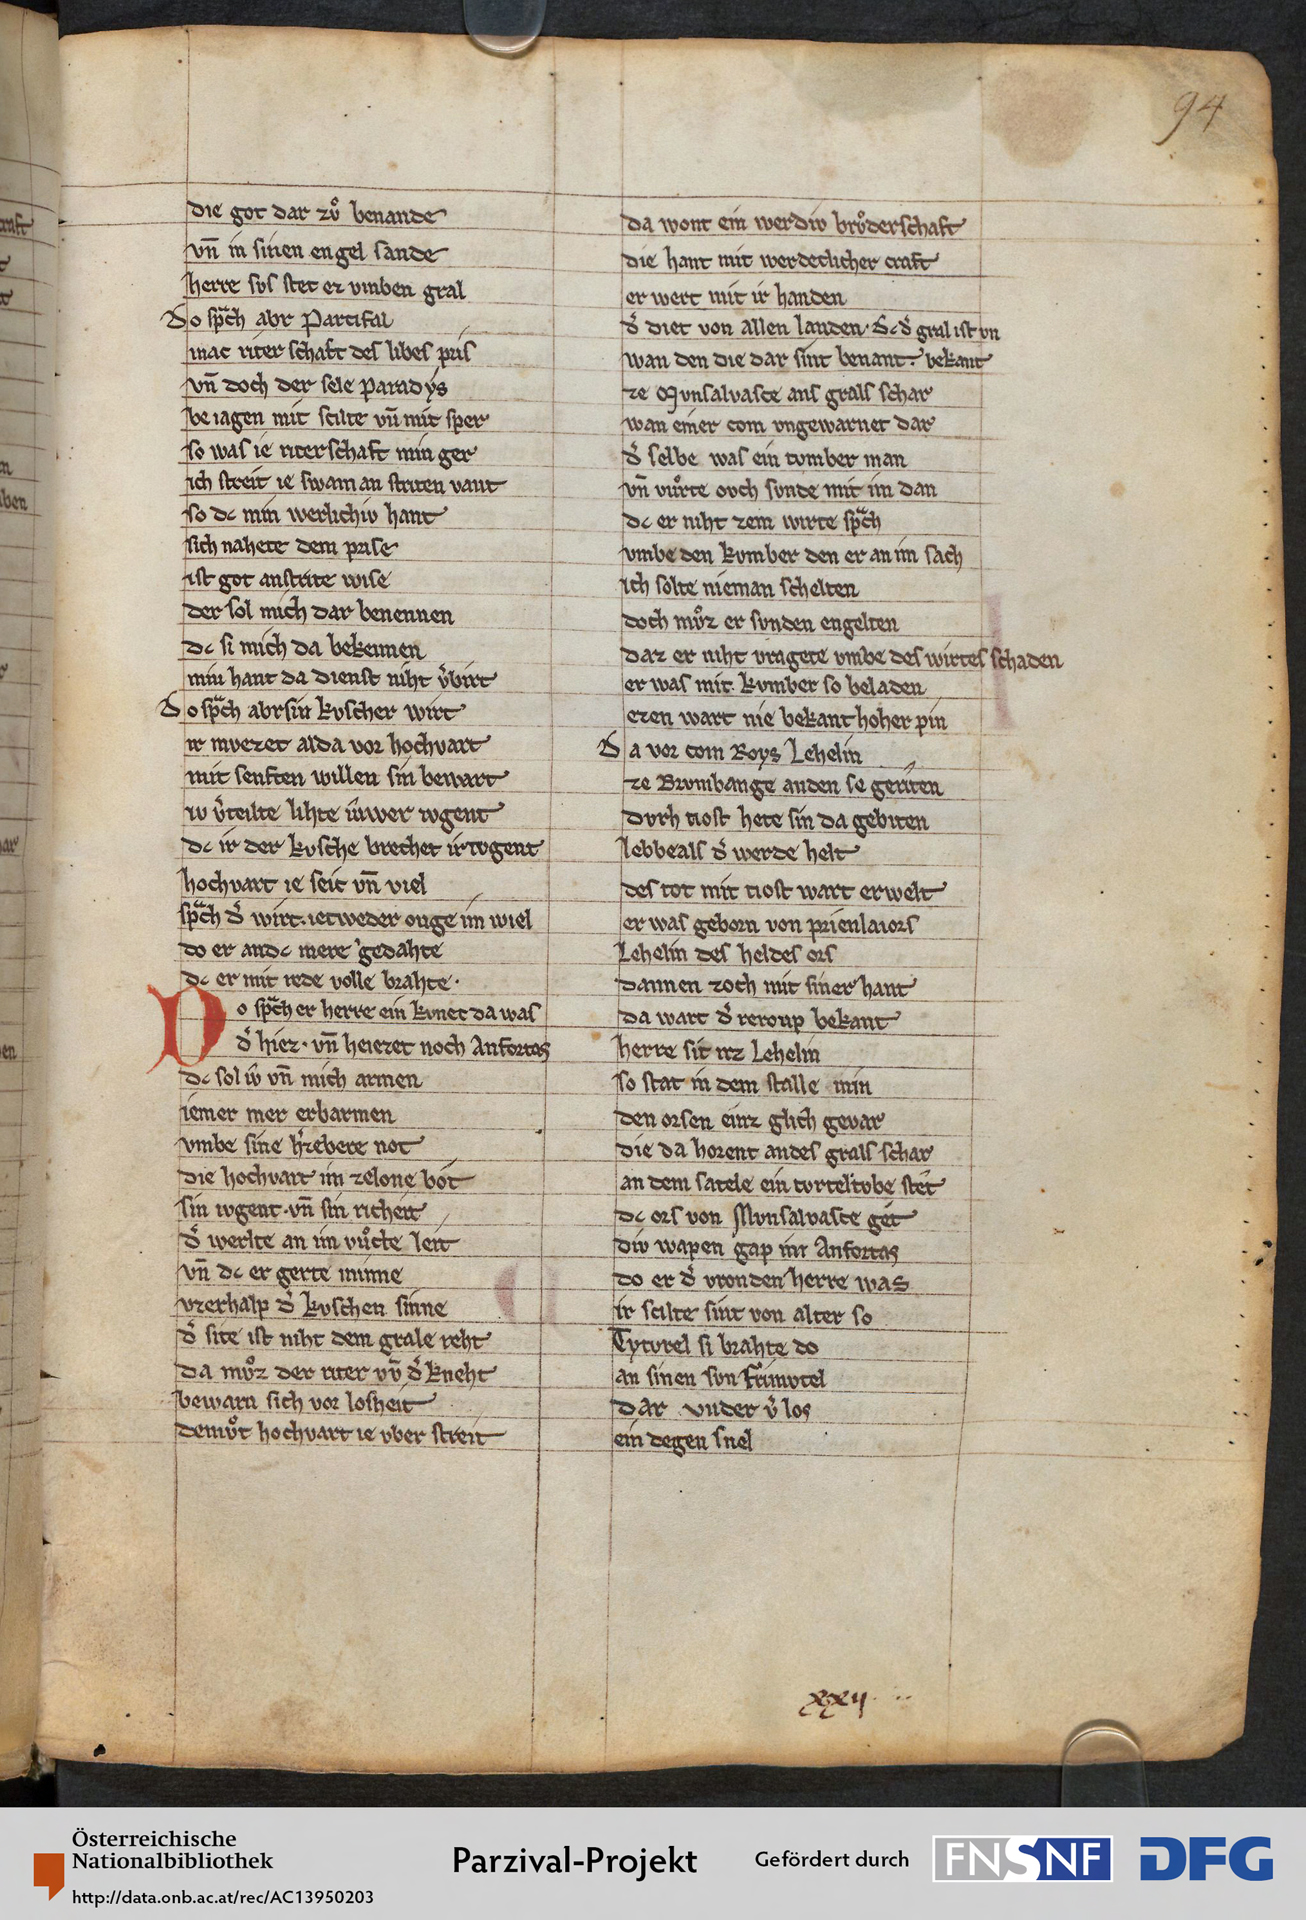 94
die got dar zuͦ benande
vn̄ in sinen engel sande
herre svs stet ez vmben gral
Do sp̄ch abr Partifal
mac riter schaft des libes pris
vn̄ doch der sele paradẏs
beiagen mit scilte vn̄ mit sper
so was ie riterschaft min ger
ich streit ie swa man striten vant
so dc min werlichiv hant
sich nahete dem prise
ist got anstrite wise
der sol mich dar benennen
dc si mich da bekennen
min hant da dienst niht v̓birt
Do sp̄ch abrsin kvscher wirt
ir mvezet alda vor hochvart
mit senften willen sin bewart
iv v̓teilte lihte iuwer ivgent
dc ir der kvsche brechet ir tvgent
hochvart ie seic vn̄ viel
sp̄ch d̓ wirt. ietweder ouge im wiel
do er an dc mere gedahte
dc er mit rede volle brahte.
Do sp̄ch er herre ein kvnec da was
d̓ hiez. vn̄ heiezet noch Anfortas
dc sol iv vn̄ mich armen
iemer mer erbarmen
vmbe sine h̓zebere not
die hochvart im ze lone bot
sin ivgent. vn̄ sin richeit
d̓ werlte an im vuͦcte leit
vn̄ dc er gerte minne
vzerhalp d̓ kvschen sinne
d̓ site ist niht dem grale reht
da muͦz der riter vn̄ d̓ kneht
bewarn sich vor losheit
demuͦt hochvart ie vber streit
da wont ein werdiv bruͦderschaft
die hant mit werdeclicher craft
er wert mit ir handen
d̓ diet von allen landen. dc d̓ gral ist vn
wan den die dar sint benant. bekant
ze Mvnsalvasce ans grals schar
wan einer com vngewarnet dar
d̓ selbe was ein tvmber man
vn̄ vuͦrte ovch svnde mit im dan
dc er niht zem wirte sp̄ch
vmbe den kvmber den er an im sach
ich solte nieman schelten
doch muͦz er svnden engelten
daz er niht vragete vmbe des wirtes schaden
er was mit kvmber so beladen
ezen wart nie bekant hoher pin
Da vor com Roys Lehelin
ze Brvmbange anden se geriten
dvrh tiost hete sin da gebiten
lebbeals d̓ werde helt
des tot mit tiost wart erwelt
er was geborn von prienlaiors
Lehelin des heldes ors
dannen zoch mit siner hant
da wart d̓ reroup bekant
herre sit irz Lehelin
so stat in dem stalle min
den orsen einz glich gevar
die da horent andes grals schar
an dem satele ein tvrteltvbe stet
dc ors von Mvnsalvasce get
div wapen gap im Anfortas
do er d̓ vronden herre was
ir scilte sint von alter so
Tytvrel si brahte do
an sinen svn Frimvtel
dar vnder v̓los
ein degen snel
xxij
Österreichische
Nationalbibliothek
http://data.onb.ac.at/rec/AC13950203
Parzival-Projekt
Gefördert durch
FNSNF
DFG